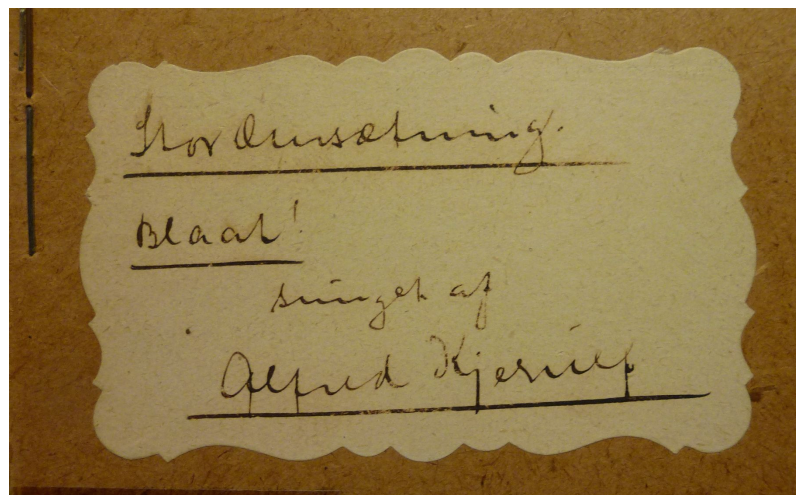 Stor Omsætning.
Blaat!
sunget af
Alfred Kjerulf